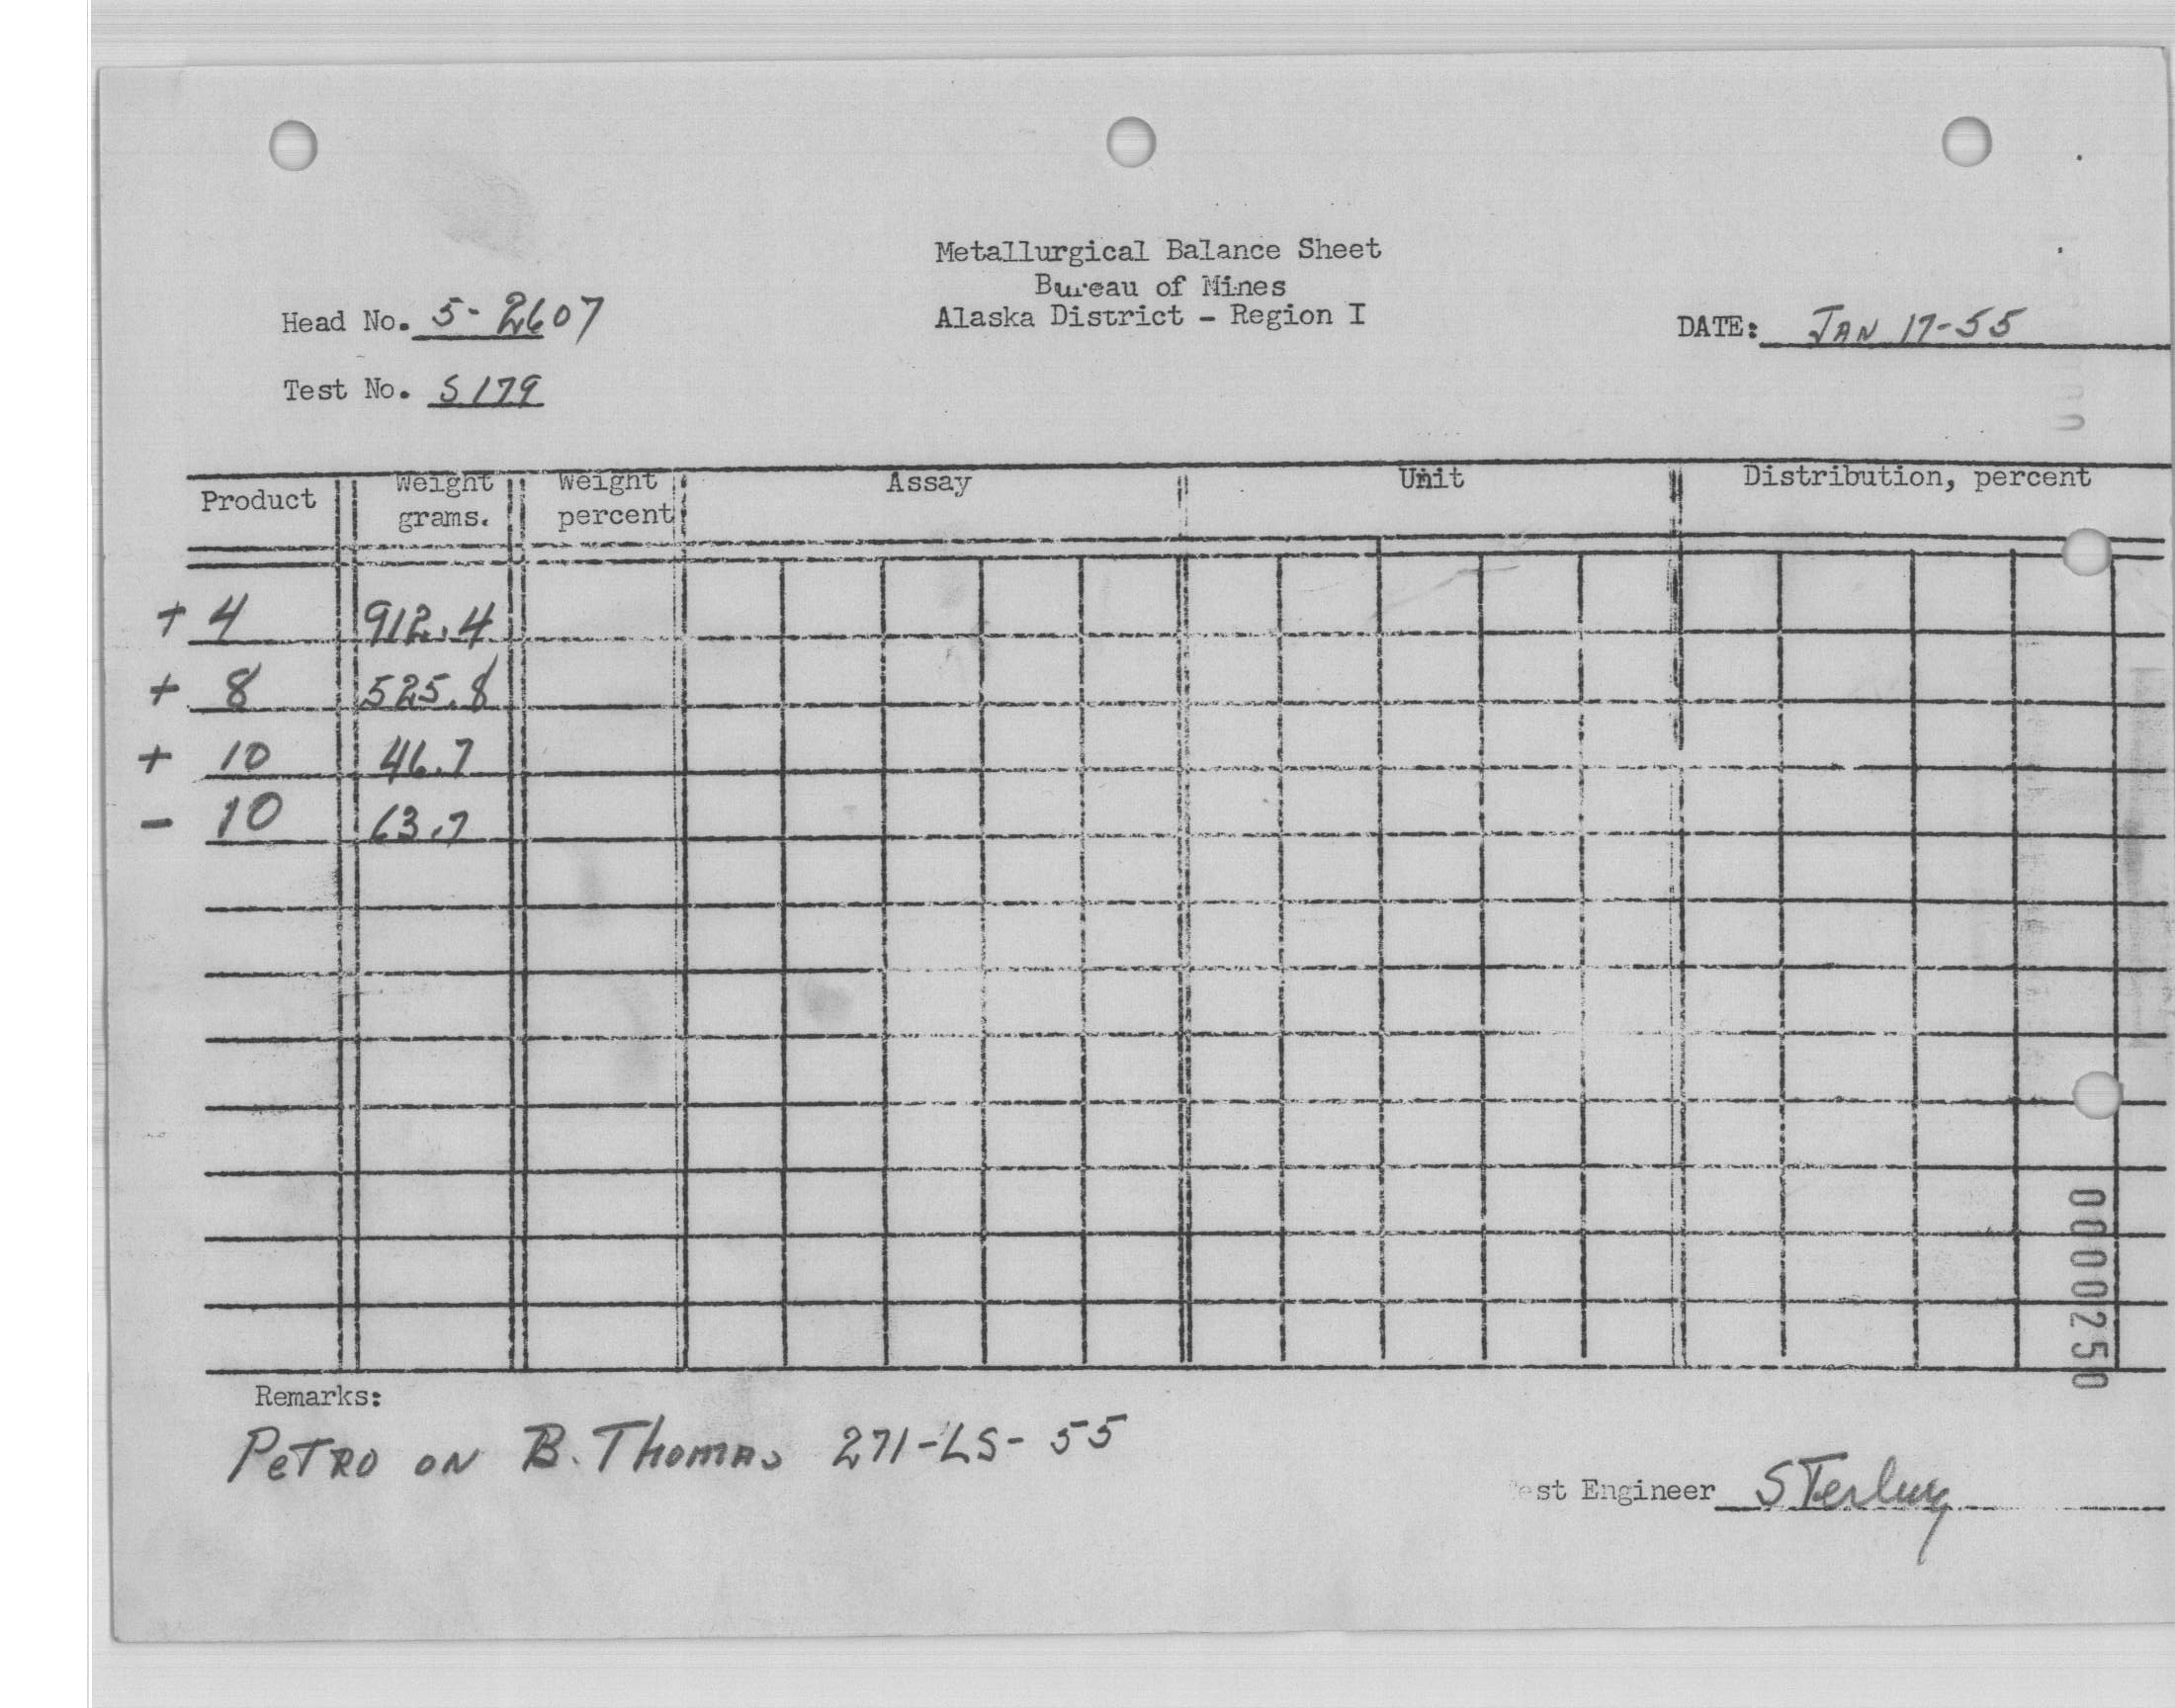 Metallurgical Balance Sheet
Bureau of Mines
Alaska District - Region I
Head No. 5-2607
DATE: JAN 17-55
Test No. S179
Product Weight grams. Weight percent Assay Unit Distribution, percent
+ 4 912.4
+ 8 525.8
+ 10 46.7
- 10 63.7
0000250
Remarks:
PETRO ON B. THOMAS 271-LS-55
Test Engineer Sterling